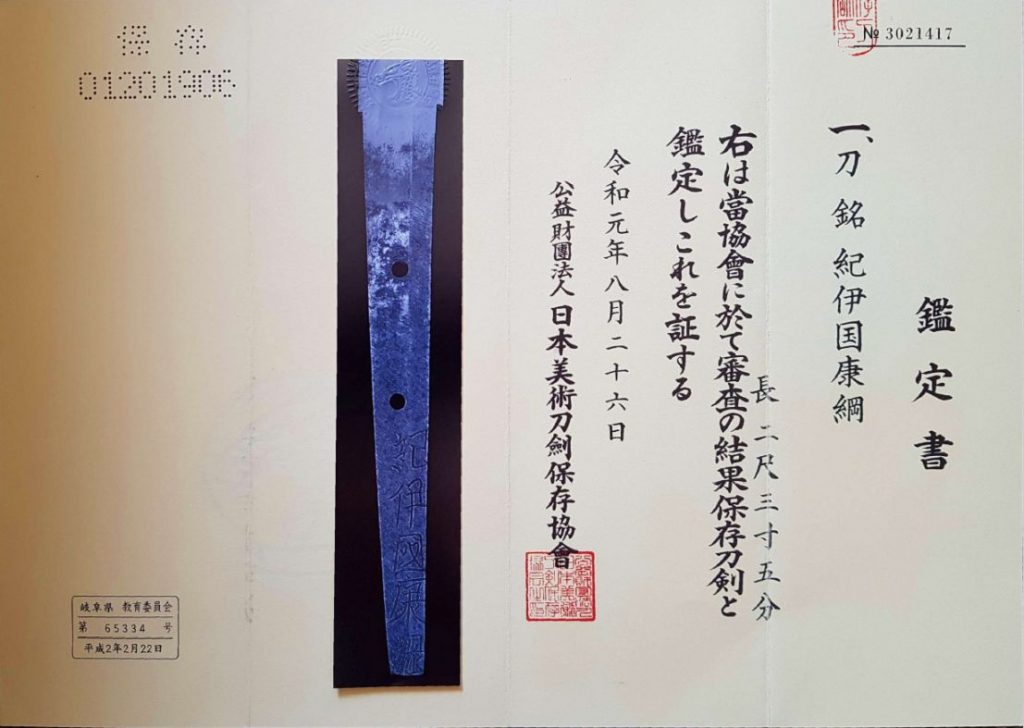 № 3021417
鑑定書
一、刀 銘 紀伊国康綱
長 二尺三寸五分
右は當協會に於て審査の結果保存刀剣と
鑑定しこれを証する
令和元年八月二十六日
公益財團法人日本美術刀劍保存協會
保存
01201906
紀伊國康綱
岐阜県 教育委員会
第 65334 号
平成2年2月22日